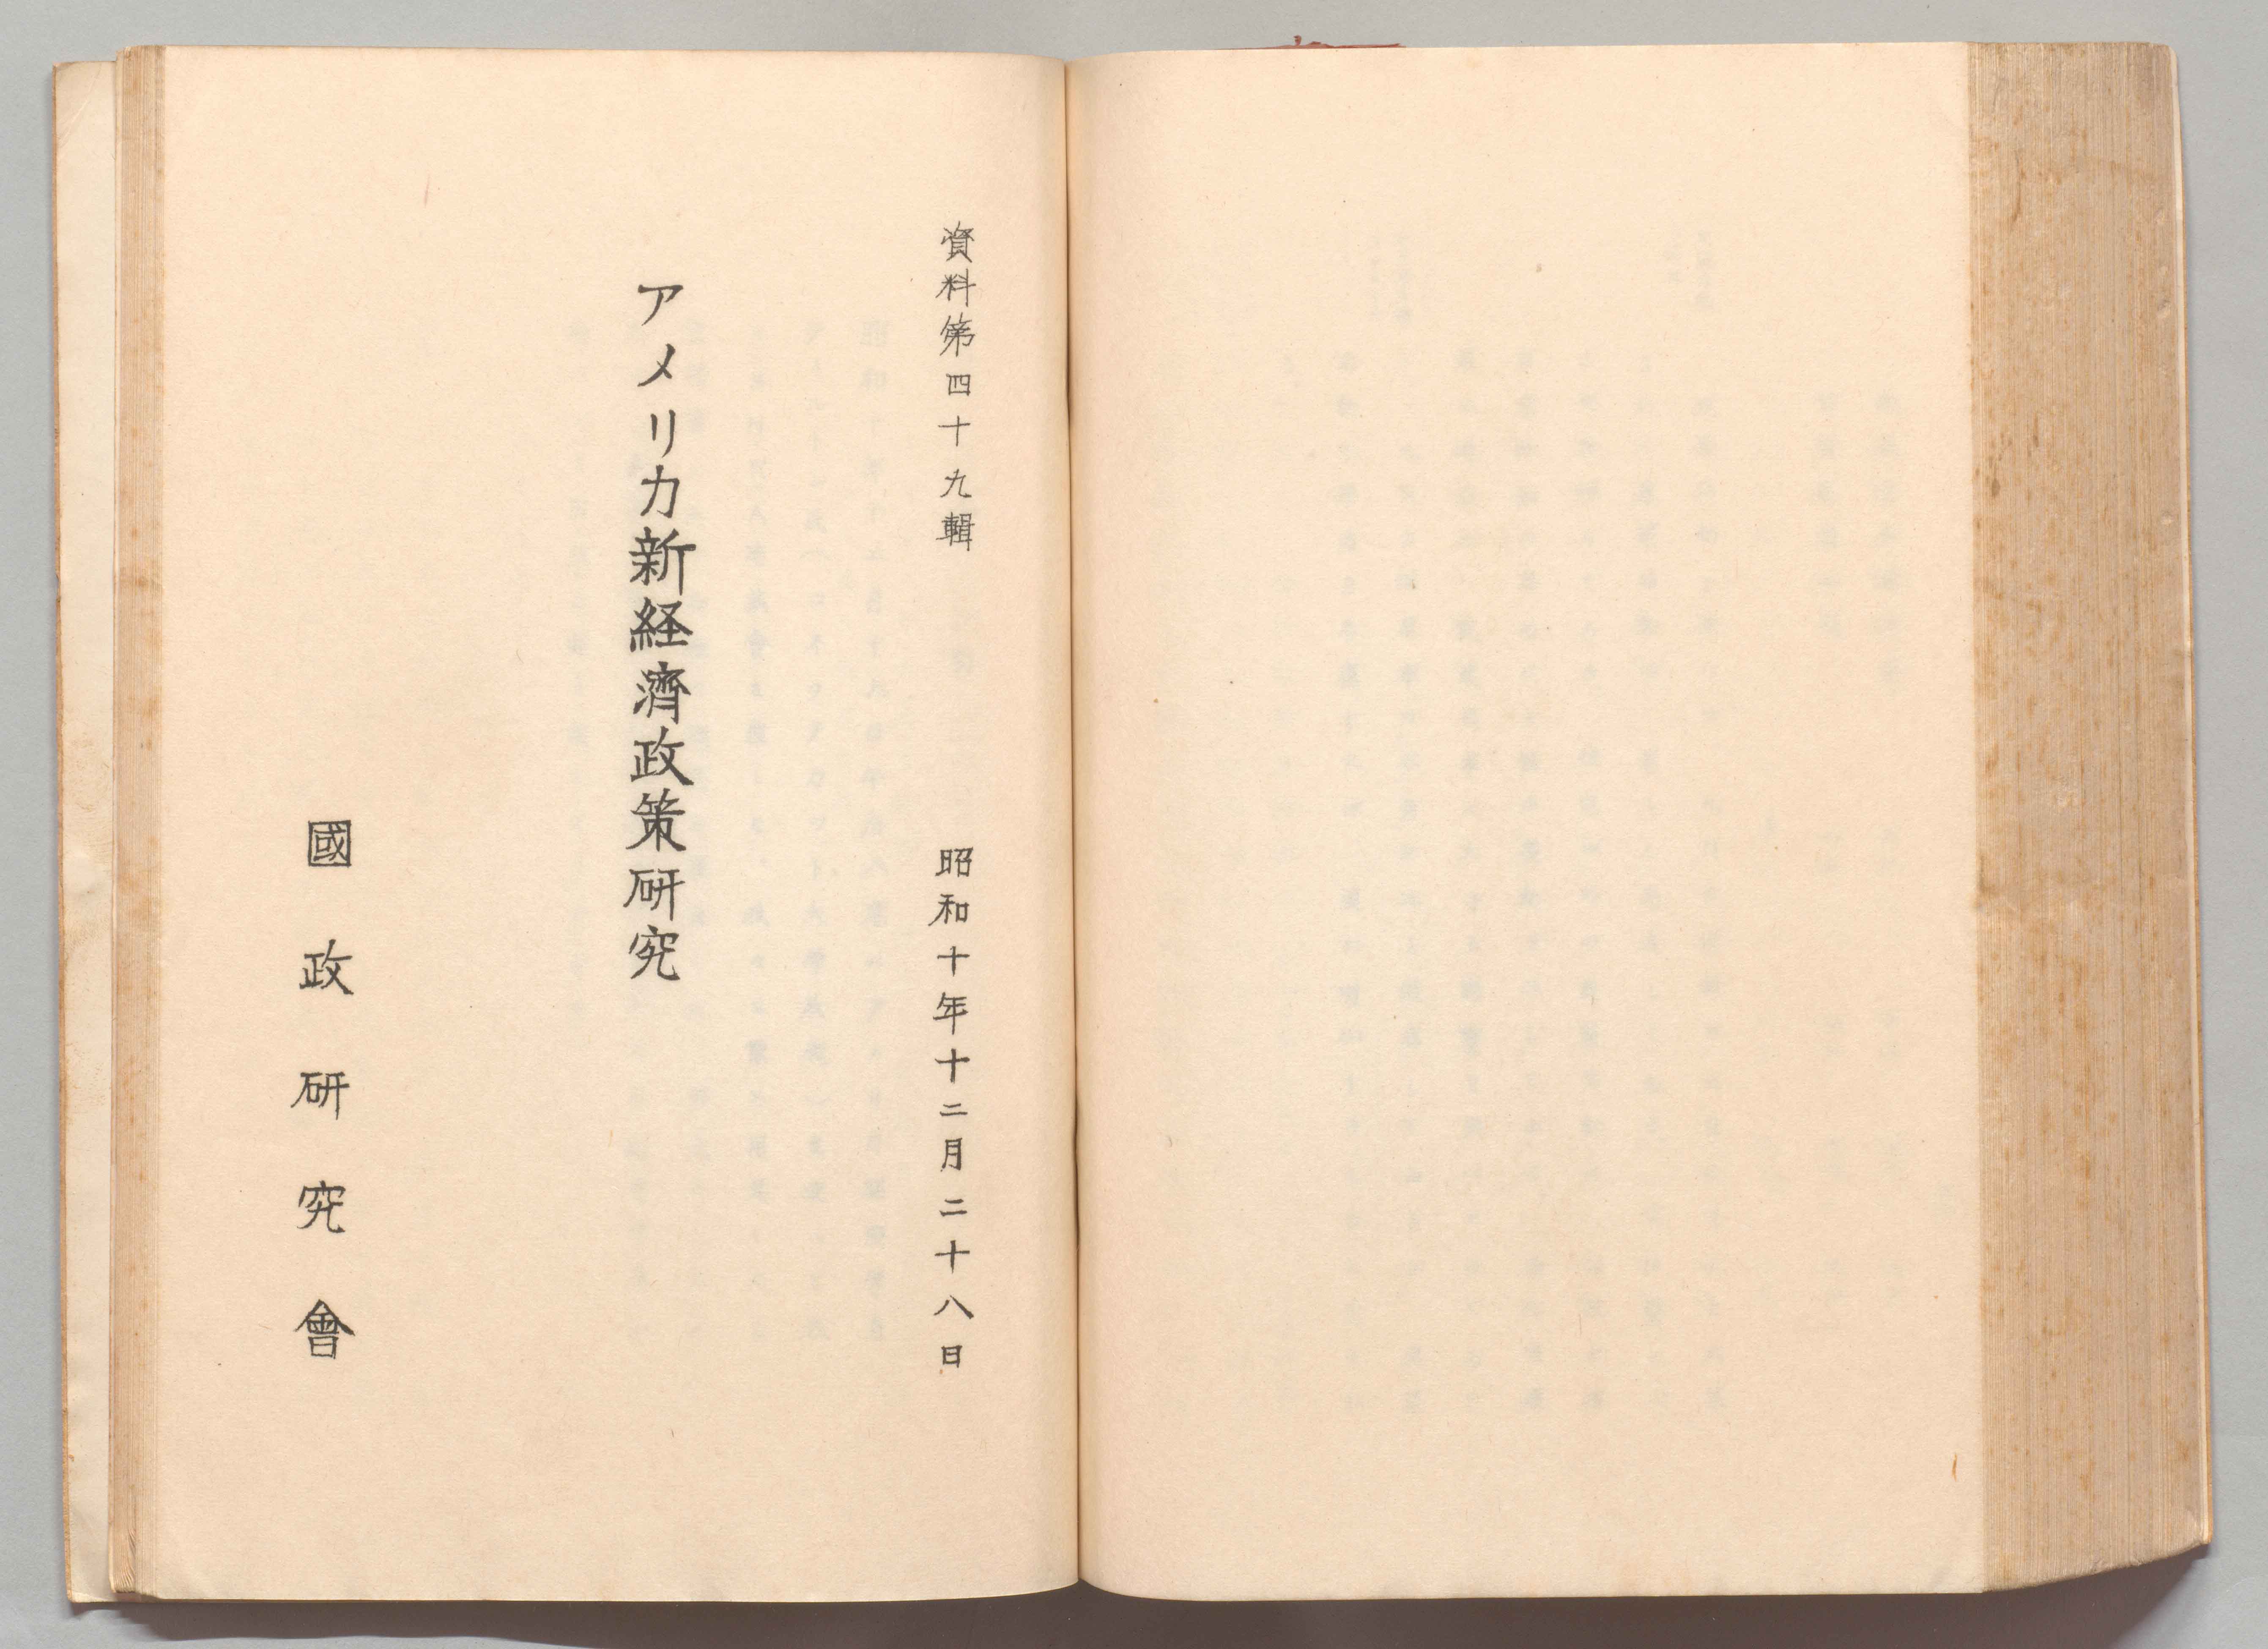 資料第四十九輯　昭和十年十二月二十八日
アメリカ新経濟政策研究
國政研究會